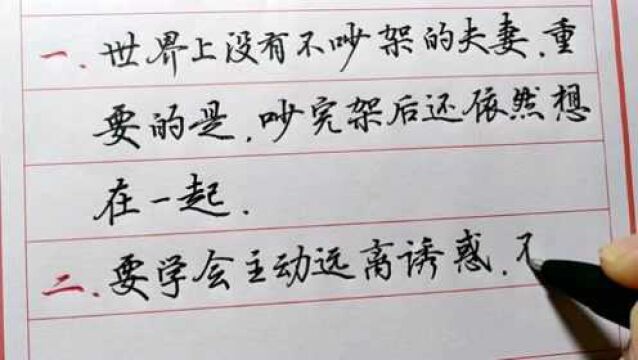 一.世界上没有不吵架的夫妻.重
要的是.吵完架后还依然想
在一起.
二.要学会主动远离诱惑.